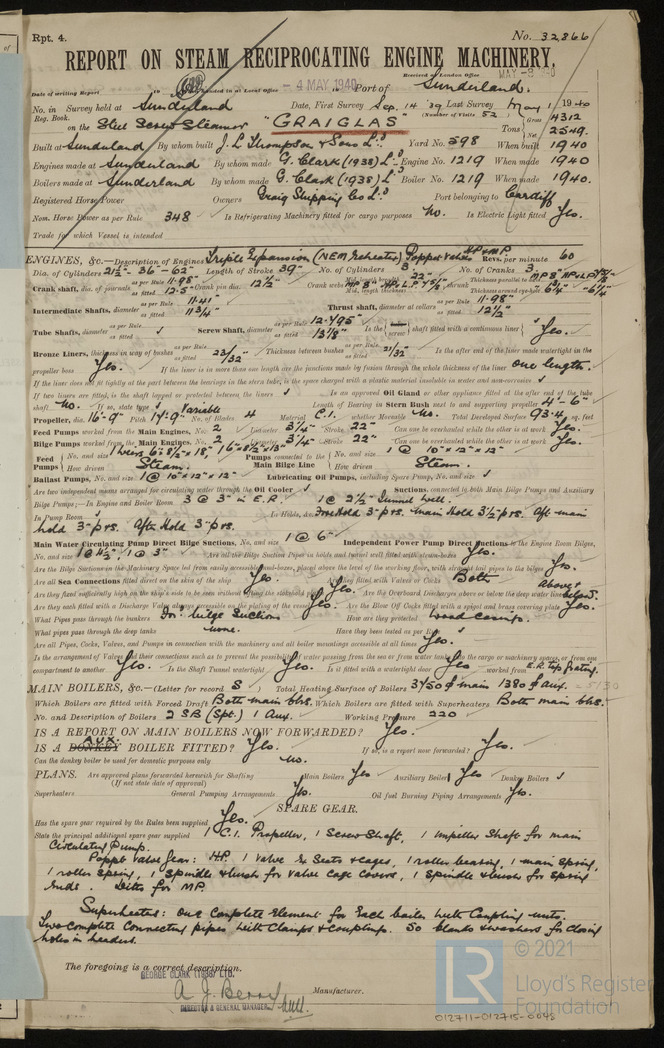 Rpt. 4.
No. 32866
REPORT ON STEAM RECIPROCATING ENGINE MACHINERY.
Received at London Office MAY -8 1940
Date of writing Report 19 When handed in at Local Office - 4 MAY 1940 Port of Sunderland.
No. in Survey held at Sunderland Date, First Survey Sep. 14 '39 Last Survey May 1 1940
Reg. Book. (Number of Visits 52)
on the Steel Screw Steamer "GRAIGLAS" Tons Gross 4312 Net 2549.
Built at Sunderland By whom built J. L. Thompson & Sons Ld. Yard No. 598 When built 1940
Engines made at Sunderland By whom made G. Clark (1938) Ld. Engine No. 1219 When made 1940
Boilers made at Sunderland By whom made G. Clark (1938) Ld. Boiler No. 1219 When made 1940.
Registered Horse Power Owners Craig Shipping Co Ld. Port belonging to Cardiff
Nom. Horse Power as per Rule 348 Is Refrigerating Machinery fitted for cargo purposes No. Is Electric Light fitted Yes.
Trade for which Vessel is intended
ENGINES, &c.—Description of Engines Triple Expansion (NEM Reheater) Poppet valves HP & MP. Revs. per minute 60
Dia. of Cylinders 21½"- 36"- 62" Length of Stroke 39" No. of Cylinders 3 No. of Cranks 3
Crank shaft, dia. of journals as per Rule 11.98" as fitted 12.5" Crank pin dia. 12½"
Intermediate Shafts, diameter as per Rule 11.41" as fitted 11¾" Thrust shaft, diameter at collars as per Rule 11.98" as fitted 12½"
Tube Shafts, diameter as per Rule as fitted Screw Shaft, diameter as per Rule 12.495" as fitted 13⅛" Is the screw shaft fitted with a continuous liner Yes.
Bronze Liners, thickness in way of bushes as per Rule as fitted 23/32" Thickness between bushes as per Rule as fitted 21/32" Is the after end of the liner made watertight in the
propeller boss Yes. If the liner is in more than one length are the junctions made by fusion through the whole thickness of the liner one length.
If the liner does not fit tightly at the part between the bearings in the stern tube, is the space charged with a plastic material insoluble in water and non-corrosive
If two liners are fitted, is the shaft lapped or protected between the liners Is an approved Oil Gland or other appliance fitted at the after end of the tube
shaft No. If so, state type Length of Bearing in Stern Bush next to and supporting propeller 4'-6"
Propeller, dia. 16'-9" Pitch 14'-9" Variable No. of Blades 4 Material C.I. whether Moveable No. Total Developed Surface 93.4 sq. feet
Feed Pumps worked from the Main Engines, No. 2 Diameter 3¼" Stroke 22" Can one be overhauled while the other is at work Yes.
Bilge Pumps worked from the Main Engines, No. 2 Diameter 3¼" Stroke 22" Can one be overhauled while the other is at work Yes.
Feed Pumps No. and size Pumps connected to the Main Bilge Line No. and size 1 @ 10" x 12" x 12"
How driven Steam. How driven Steam.
Ballast Pumps, No. and size 1 @ 10" x 12" x 12" Lubricating Oil Pumps, including Spare Pump, No. and size
Are two independent means arranged for circulating water through the Oil Cooler Suctions, connected to both Main Bilge Pumps and Auxiliary
Bilge Pumps;—In Engine and Boiler Room 3 @ 3" in E.R. 1 @ 2½" Tunnel well.
In Pump Room In Holds, &c. Forehold 3" p & s. Main Hold 3½" p & s. Aft main
hold 3" p & s. Aft Hold 3" p & s.
Main Water Circulating Pump Direct Bilge Suctions, No. and size 1 @ 6" Independent Power Pump Direct Suctions to the Engine Room Bilges,
No. and size 1 @ 4½", 1 @ 3" Are all the Bilge Suction Pipes in holds and tunnel well fitted with strum-boxes Yes.
Are the Bilge Suctions in the Machinery Space led from easily accessible mud-boxes, placed above the level of the working floor, with straight tail pipes to the bilges Yes.
Are all Sea Connections fitted direct on the skin of the ship Yes. Are they fitted with Valves or Cocks Both
Are they fixed sufficiently high on the ship's side to be seen without lifting the stokehold plates Yes. Are the Overboard Discharges above or below the deep water line above & below.
Are they each fitted with a Discharge Valve always accessible on the plating of the vessel Yes. Are the Blow Off Cocks fitted with a spigot and brass covering plate Yes.
What Pipes pass through the bunkers For'd bilge suctions How are they protected Wood casings.
What pipes pass through the deep tanks none. Have they been tested as per Rule
Are all Pipes, Cocks, Valves, and Pumps in connection with the machinery and all boiler mountings accessible at all times Yes.
Is the arrangement of Valves and their connections such as to prevent the possibility of water passing from the sea or from water tanks into the cargo or machinery spaces, or from one
compartment to another Yes. Is the Shaft Tunnel watertight Yes. Is it fitted with a watertight door Yes worked from E.R. top grating.
MAIN BOILERS, &c.—(Letter for record S) Total Heating Surface of Boilers 3750 # main 1380 # aux. = 5130
Which Boilers are fitted with Forced Draft Both main blrs. Which Boilers are fitted with Superheaters Both main blrs.
No. and Description of Boilers 2 SB (Spt.) 1 Aux. Working Pressure 220
IS A REPORT ON MAIN BOILERS NOW FORWARDED? Yes.
IS A AUX. DONKEY BOILER FITTED? Yes. If so, is a report now forwarded? Yes.
Can the donkey boiler be used for domestic purposes only no.
PLANS. Are approved plans forwarded herewith for Shafting Main Boilers Yes Auxiliary Boilers Yes Donkey Boilers
(If not state date of approval)
Superheaters General Pumping Arrangements Yes. Oil fuel Burning Piping Arrangements Yes.
SPARE GEAR.
Has the spare gear required by the Rules been supplied Yes.
State the principal additional spare gear supplied 1 C.I. Propeller, 1 Screw Shaft, 1 Impeller Shaft for main
Circulating Pump.
Poppet Valve Gear: HP. 1 valve & seats & cages, 1 roller bearing, 1 main spring,
1 roller spring, 1 spindle & bush for valve cage covers, 1 spindle & bush for spring
ends. Ditto for MP.
Superheater: one complete element for each boiler with coupling nuts.
Two complete connecting pipes with clamps & couplings. 50 blanks & washers for closing
holes in headers.
The foregoing is a correct description.
GEORGE CLARK (1938) LTD.
A J Berry
DIRECTOR & GENERAL MANAGER
Manufacturer.
© 2021
LR
Lloyd's Register
Foundation
012711-012715-0048